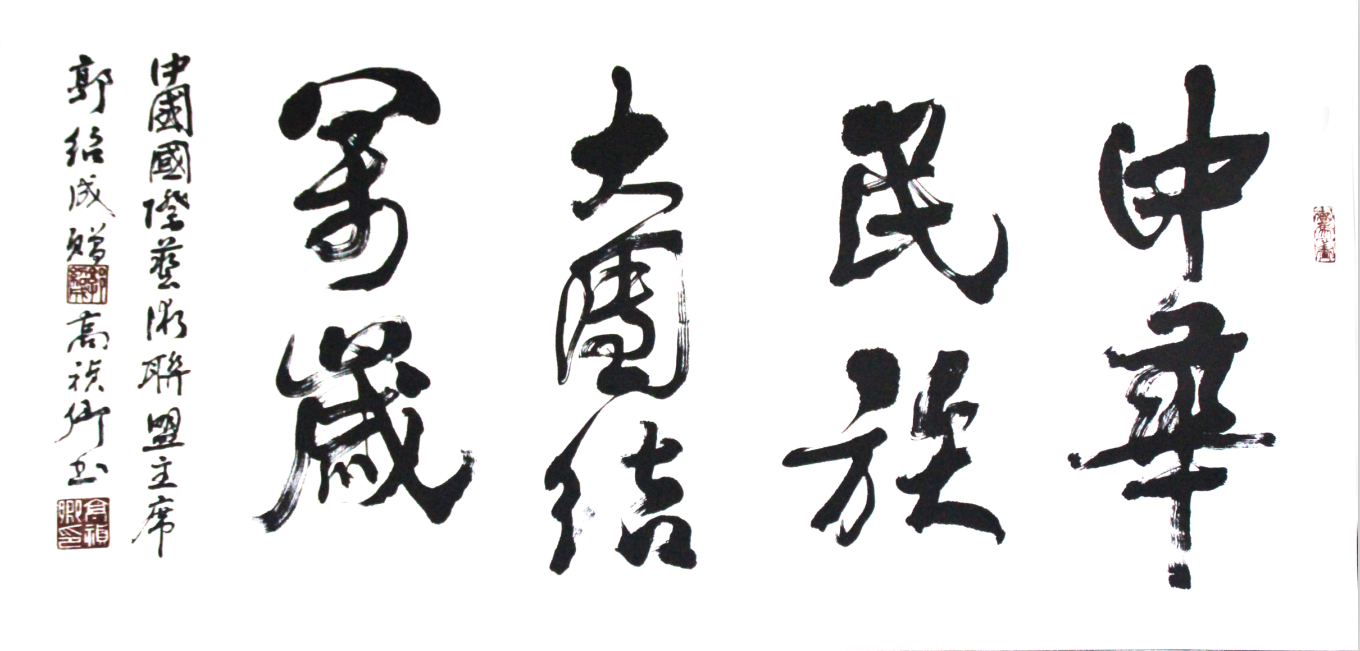 中華
民族
大團結
萬歲
中國國際藝術聯盟主席
郭紹成贈 高禎卿书